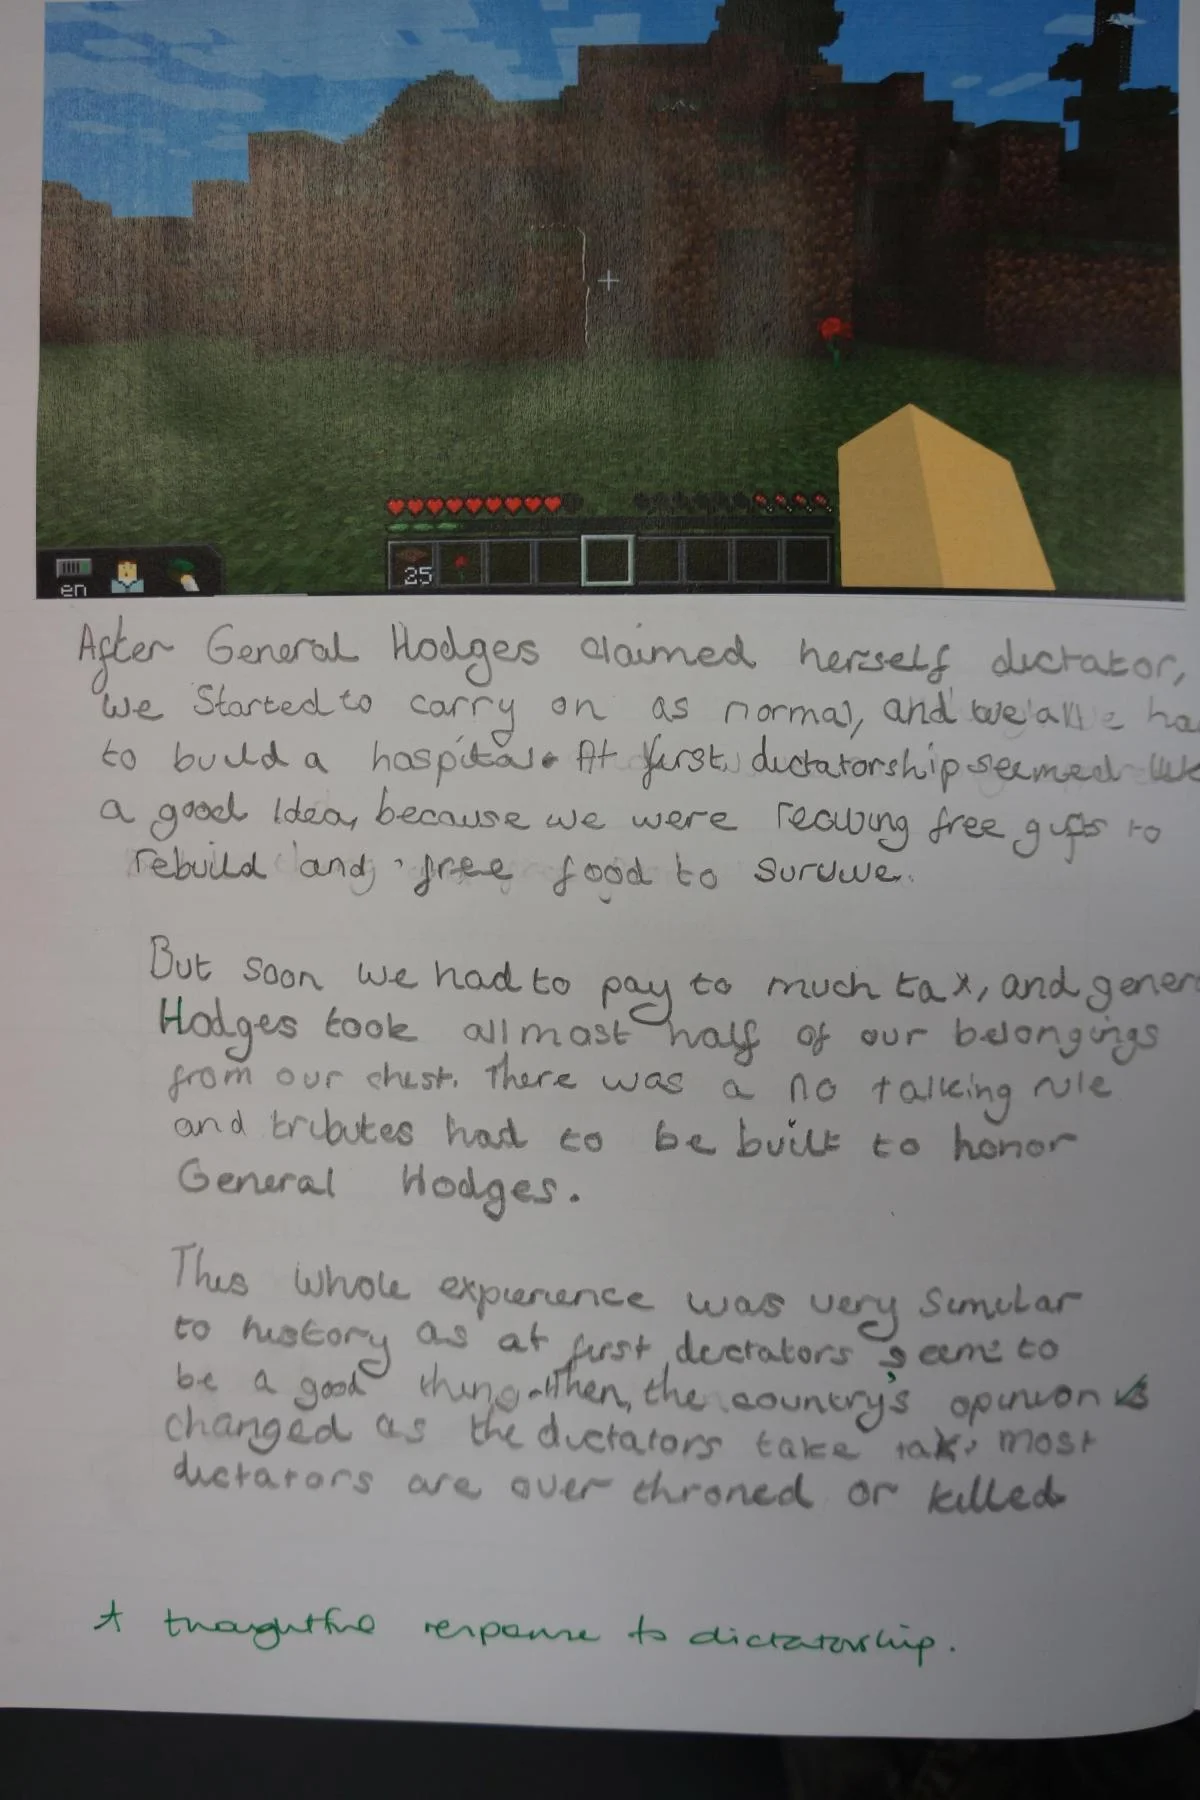 en
25
After General Hodges claimed herself dictator,
we started to carry on as normal, and we all ha
to build a hospital. At first, dictatorship seemed like
a good Idea, because we were reciving free gifts to
rebuild and free food to survive.
But soon we had to pay to much tax, and gener
Hodges took allmost half of our belongings
from our chest. There was a no talking rule
and tributes had to be built to honor
General Hodges.
This whole experience was very simular
to history as at first dictators seem to
be a good thing. Then, the country's opinion is
changed as the dictators take tax, most
dictators are over throned or killed
A thoughtful response to dictatorship.